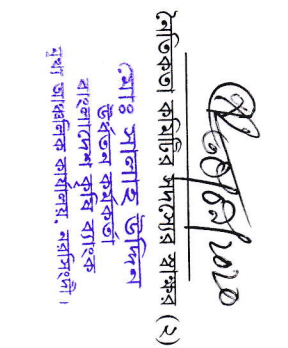 নৈতিকতা কমিটির সদস্যের স্বাক্ষর (২)
মোঃ সালাহ উদ্দিন
উর্ধ্বতন কর্মকর্তা
বাংলাদেশ কৃষি ব্যাংক
মুখ্য আঞ্চলিক কার্যালয়, নরসিংদী।